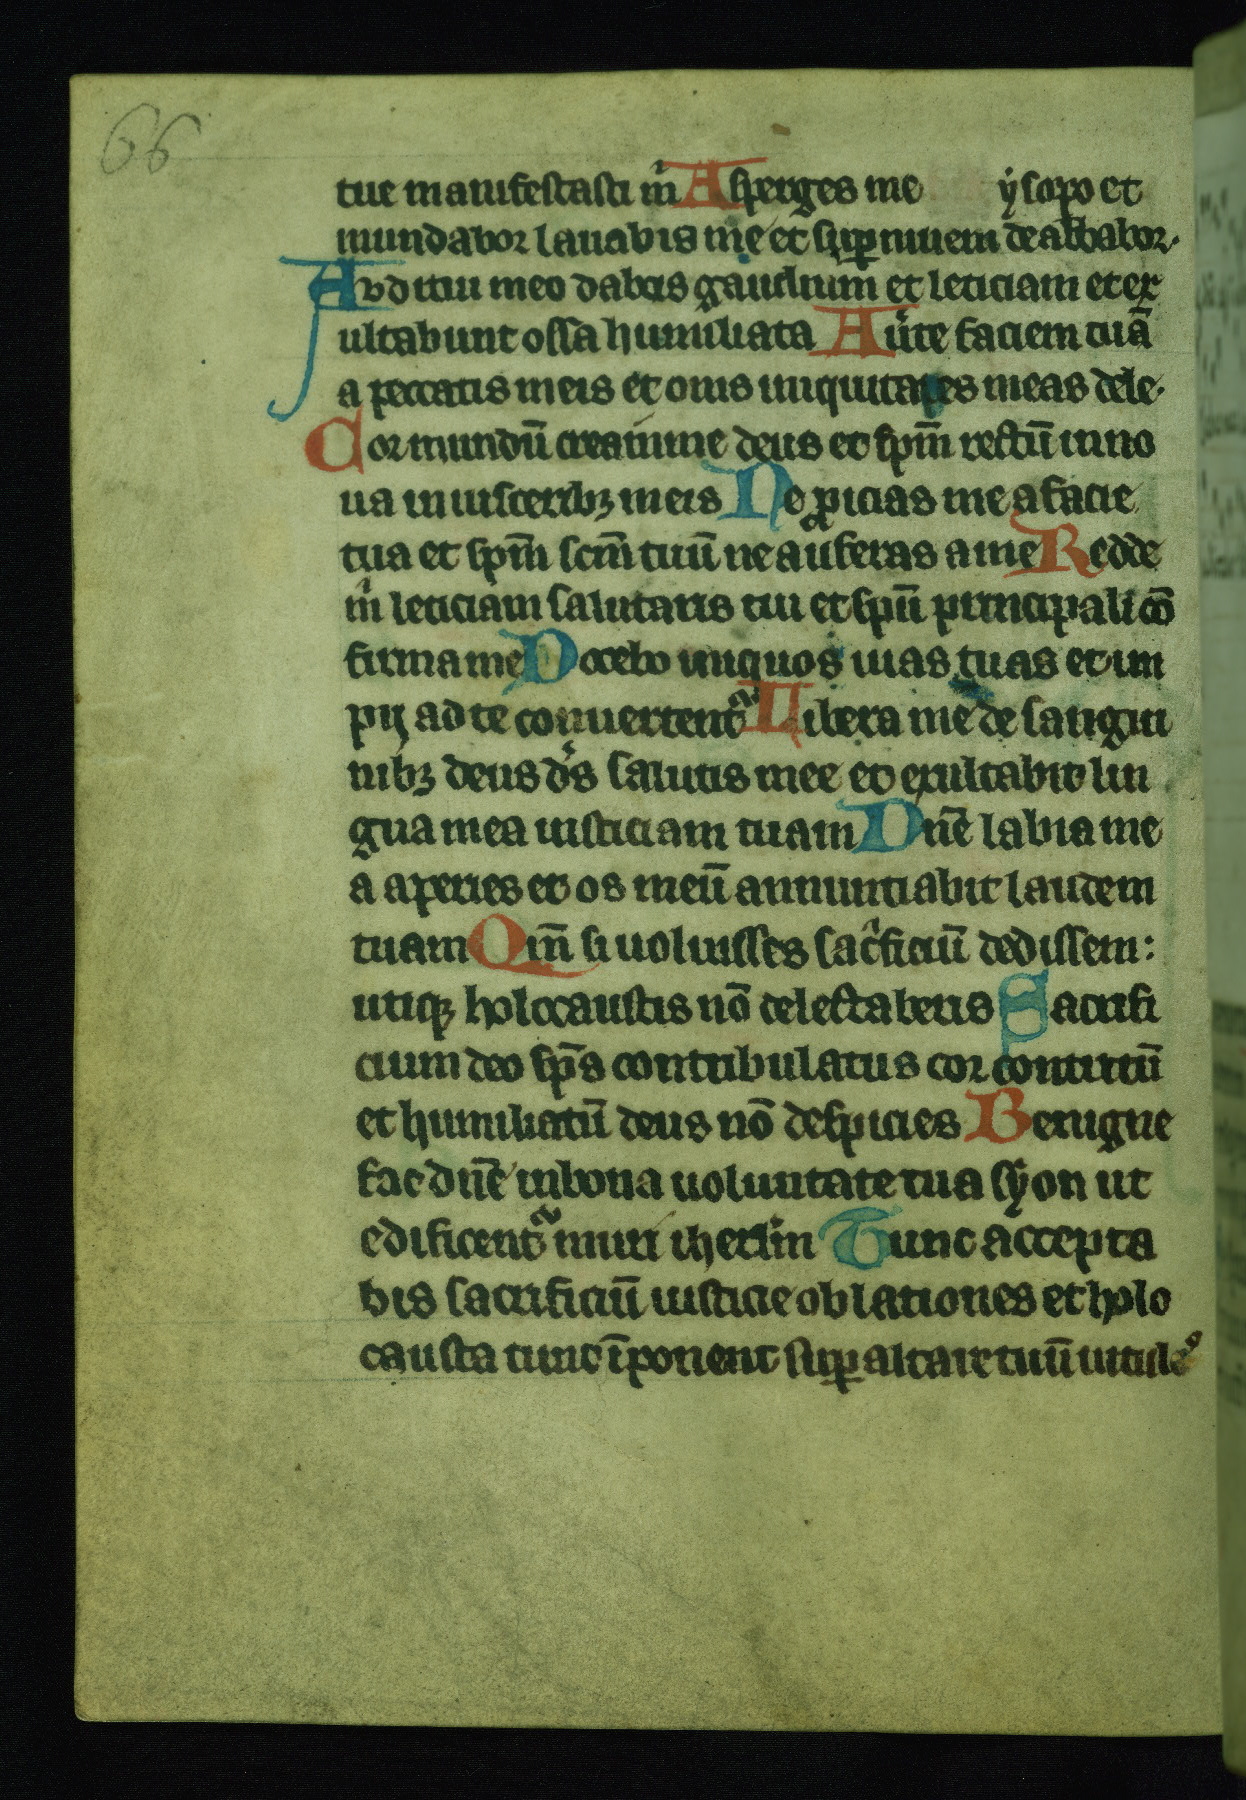 66
tue manifestasti m̃ Asperges me ysopo et
mundabor lauabis me et sup niuem dealbabor.
Avditui meo dabis gaudium et leticiam et ex
ultabunt ossa humiliata Aũte faciem tuã
a peccatis meis et om̃s iniquitates meas dele.
Cor mundũ crea in me deus et sp̃m rectũ inno
ua in uisceribꝫ meis Ne ꝓicias me a facie
tua et sp̃m sc̃m tuũ ne auferas a me Redde
m̃ leticiam salutaris tui et sp̃u principali cõ
firma me Docebo iniquos uias tuas et im
pij ad te conuertent̃ Libera me de sangui
nibꝫ deus ds̃ salutis mee et exultabit lin
gua mea iusticiam tuam Dñe labia me
a aperies et os meũ annuntiabit laudem
tuam Qm̃ si uoluisses sac̃ficiũ dedissem:
utiqꝫ holocaustis nõ delectaberis Sacrifi
cium deo sp̃s contribulatus cor contritũ
et humiliatũ deus nõ despicies Benigne
fac dñe in bona uoluntate tua syon ut
edificent̃ muri iherl̃m Tunc accepta
bis sacrificiũ iusticie oblationes et holo
causta tunc ĩponent sup altare tuũ uitul̃os